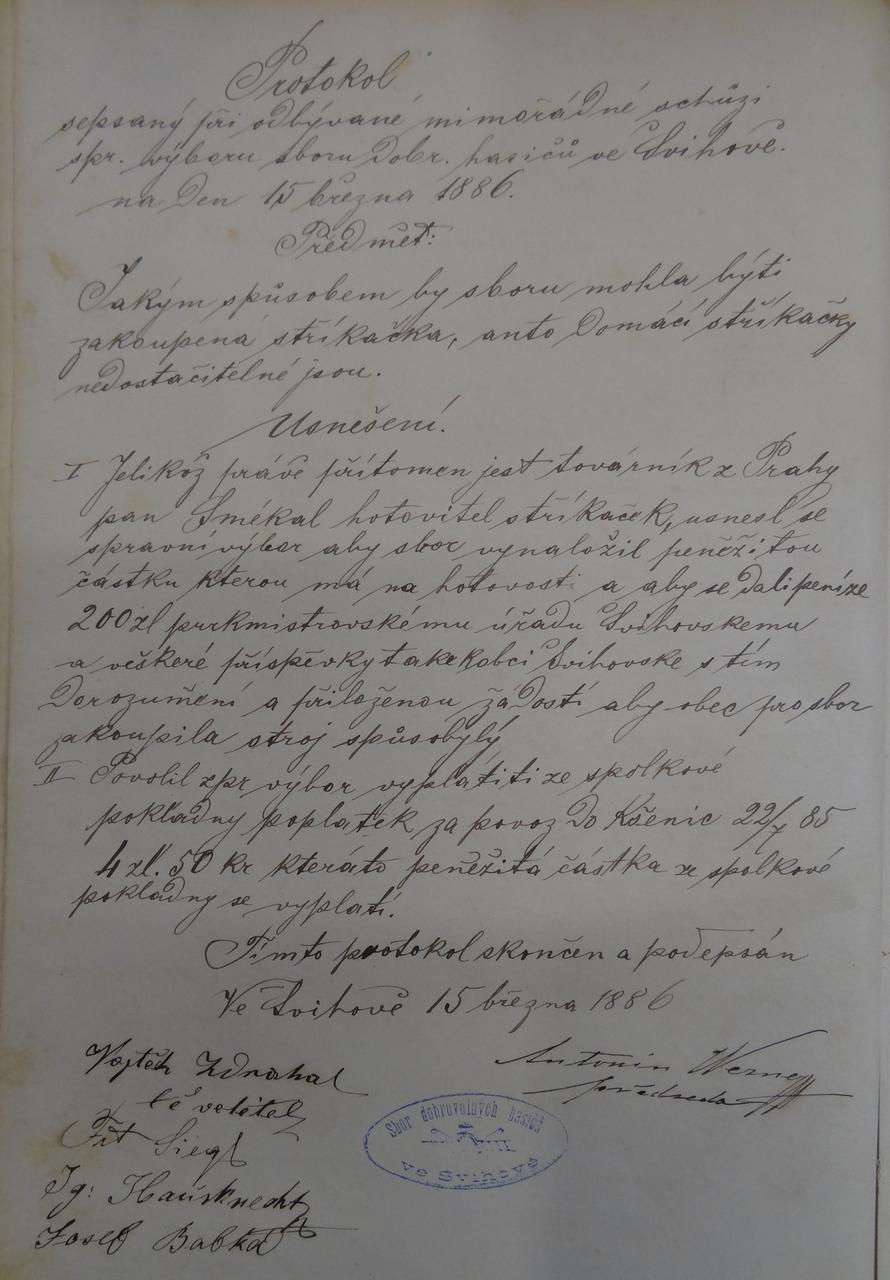 Protokol
sepsaný při odbývané mimořádné schůzi
spr. výboru sboru dobr. hasičů ve Švihově.
na den 15 března 1886.
Předmět:
Jakým spůsobem by sboru mohla býti
zakoupená stříkačka, anto domácí stříkačky
nedostačitelné jsou.
Usnešení.
I Jelikož právě přítomen jest továrník z Prahy
pan Smékal hotovitel stříkaček, usnesl se
spravní výbor aby sbor vynaložil peněžitou
částku kterou má na hotovosti a aby se dali peníze
200 zl purkmistrovskému úřadu Švihovskemu
a veškeré příspěvky také obci Švihovske s tím
dorozumění a přiloženou žádostí aby obec pro sbor
zakoupila stroj spůsobylý
II Povolil zpr výbor vyplatiti ze spolkové
pokladny poplatek za povoz do Kšenic 22/7 85
4 zl. 50 kr kteráto peněžitá částka ze spolkové
pokladny se vyplatí.
Tímto protokol skončen a podepsán
Ve Švihově 15 března 1886
Vojtěch Zdrahal
velitel
Antonín Werner
předseda
Sbor dobrovolných hasičů
ve Švihově
Siegl
Ig: Hausknecht
Josef Babka